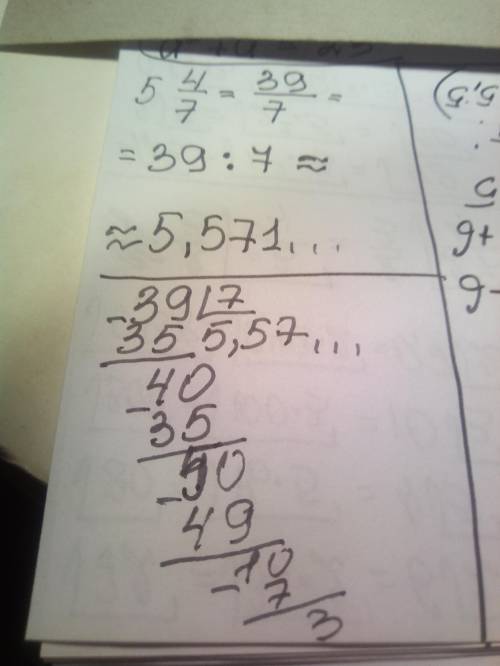 5 4/7 = 39/7 =
= 39 : 7 ≈
≈ 5,571...
-39 | 7
35 5,57...
-40
35
-50
49
-10
7
3
5,5
+6
-6